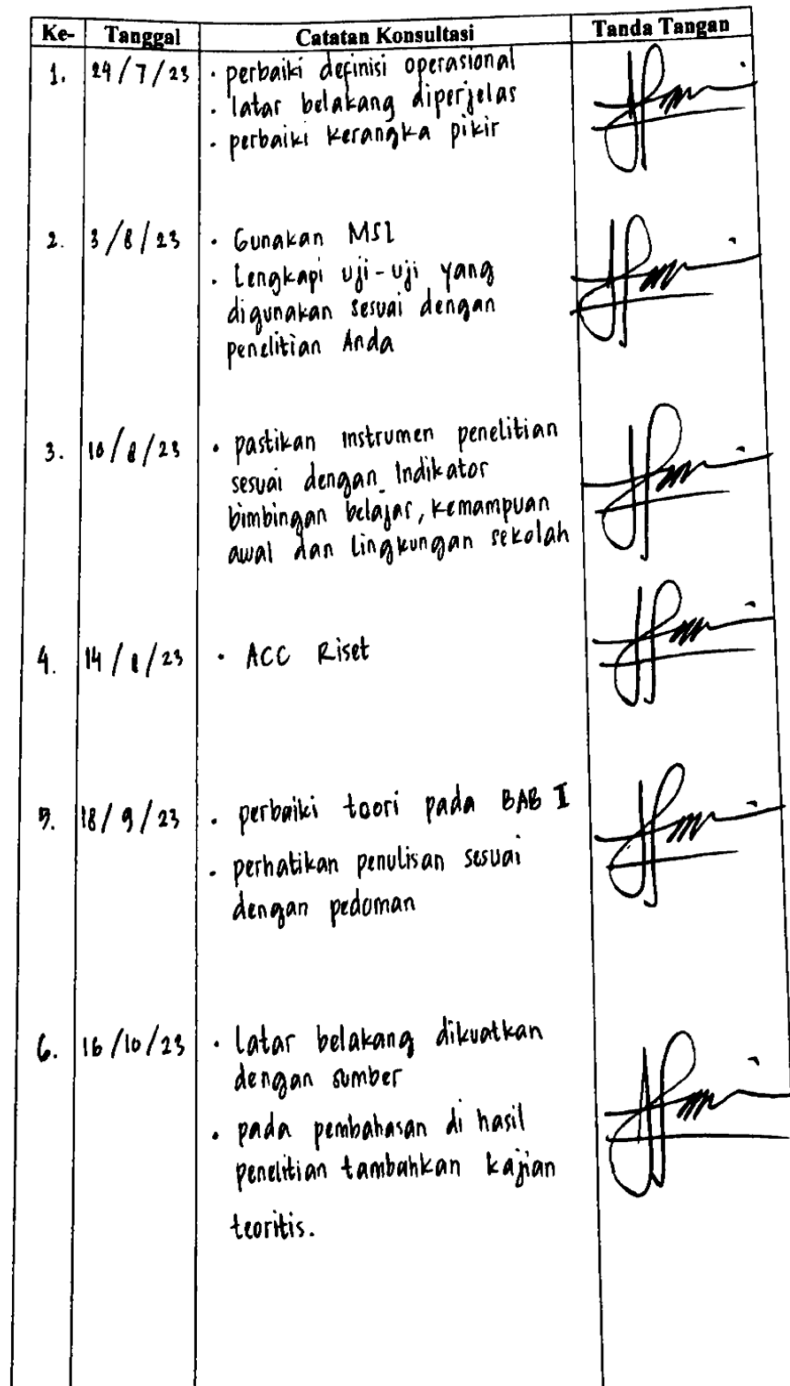 Ke- Tanggal Catatan Konsultasi Tanda Tangan
1. 24/7/23 · perbaiki definisi operasional
· latar belakang diperjelas
· perbaiki kerangka pikir
2. 3/8/23 · Gunakan MSI
· Lengkapi uji-uji yang
digunakan sesuai dengan
penelitian Anda
3. 10/8/23 · pastikan instrumen penelitian
sesuai dengan Indikator
bimbingan belajar, kemampuan
awal dan lingkungan sekolah
4. 14/8/23 · ACC Riset
5. 18/9/23 · perbaiki teori pada BAB I
· perhatikan penulisan sesuai
dengan pedoman
6. 16/10/23 · latar belakang dikuatkan
dengan sumber
· pada pembahasan di hasil
penelitian tambahkan kajian
teoritis.